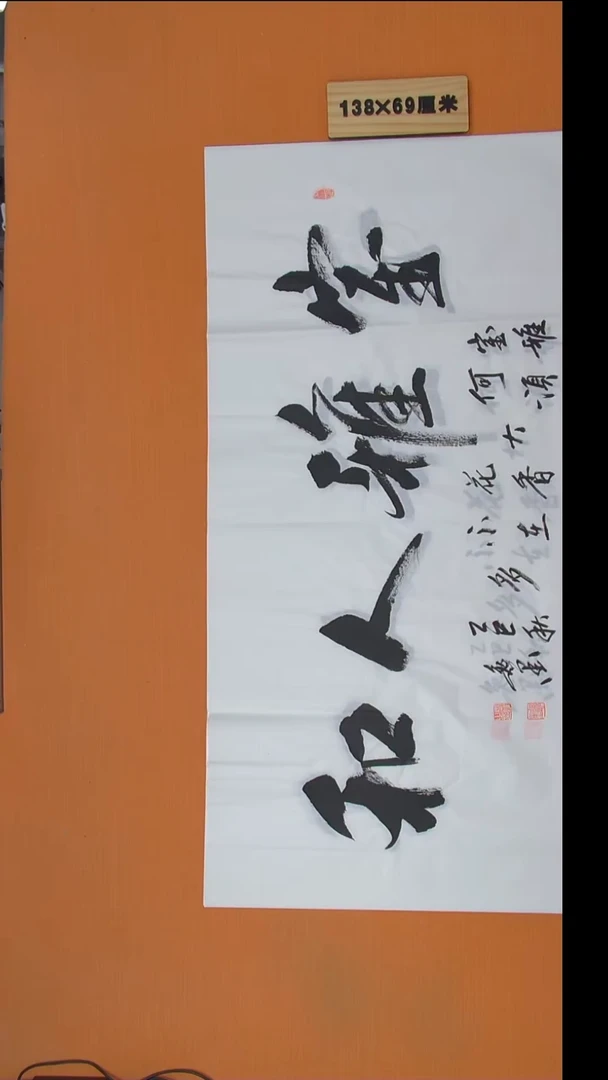 138×69厘米
室雅人和
室雅
何須
大
花香
不在
多
乙巳秋